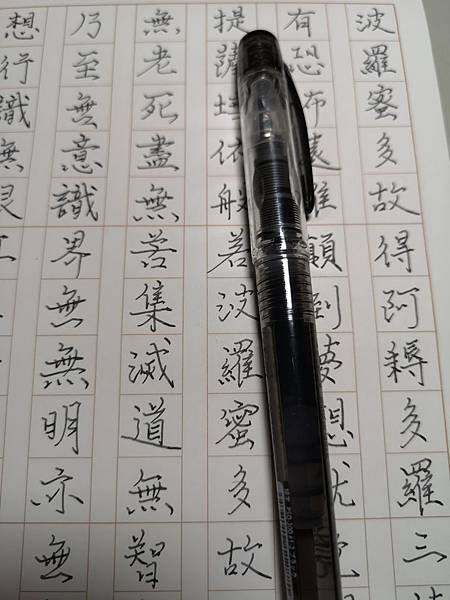 波羅蜜多故得阿耨多羅三
有恐怖遠離顛倒夢想究
提薩埵依般若波羅蜜多故
無老死盡無苦集滅道無智
乃至無意識界無無明亦無
想行識無眼